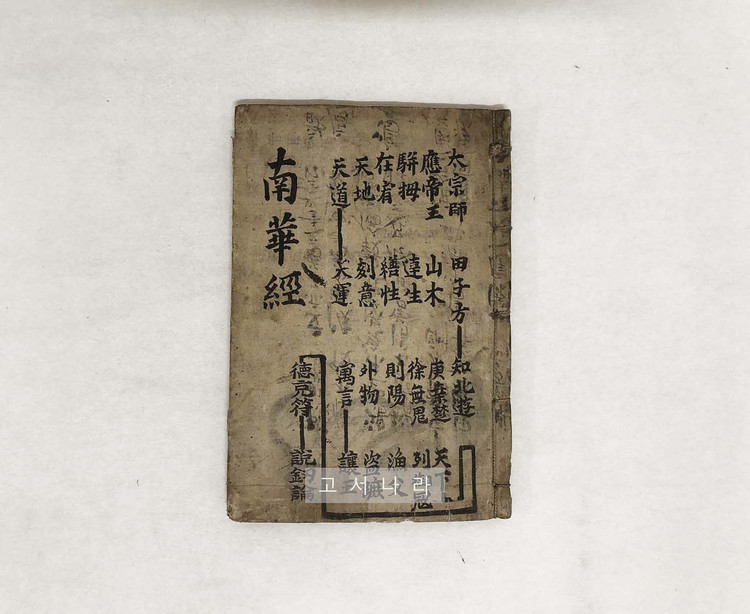 太宗師 田子方 知北遊
應帝王 山木 庚桑楚 天下
騈拇 達生 徐無鬼 列
在宥 繕性 則陽 漁父
天地 刻意 外物 盜
天道 天運 寓言 讓王
德充符 說劒論
南華經
고서나라